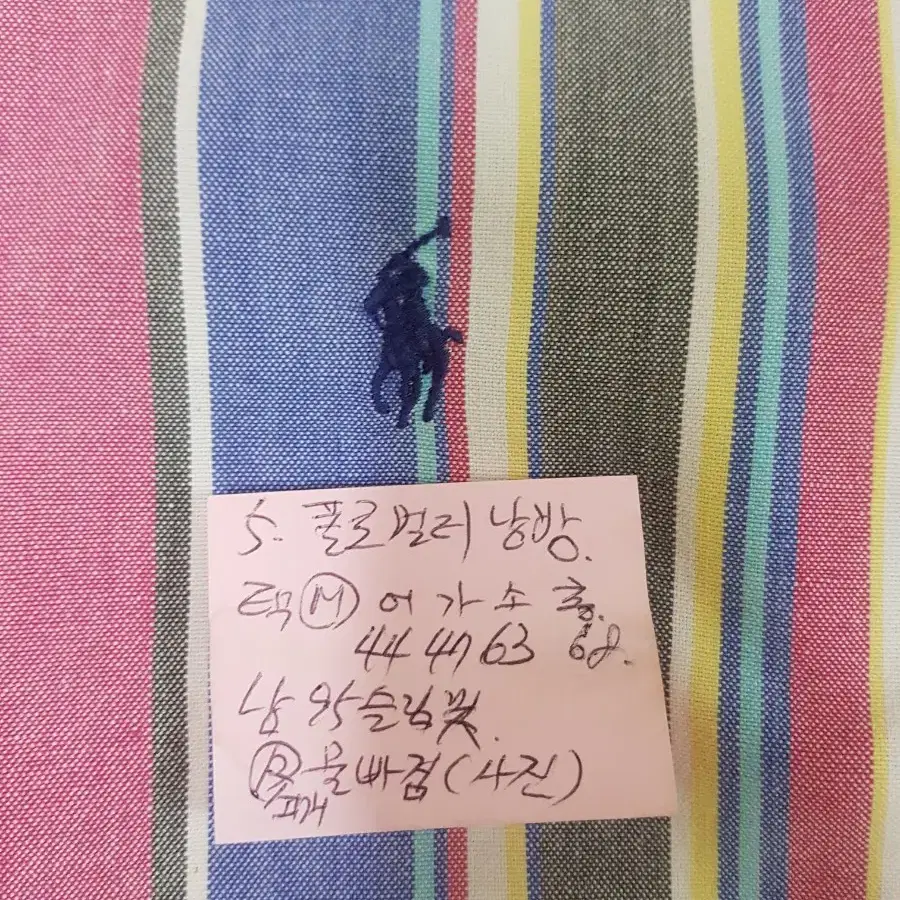 5. 폴로 컬러 남방.
택 Ⓜ 어 가 소 총.
44 47 63 68.
남 95 슬림핏.
물빠짐 (사진)